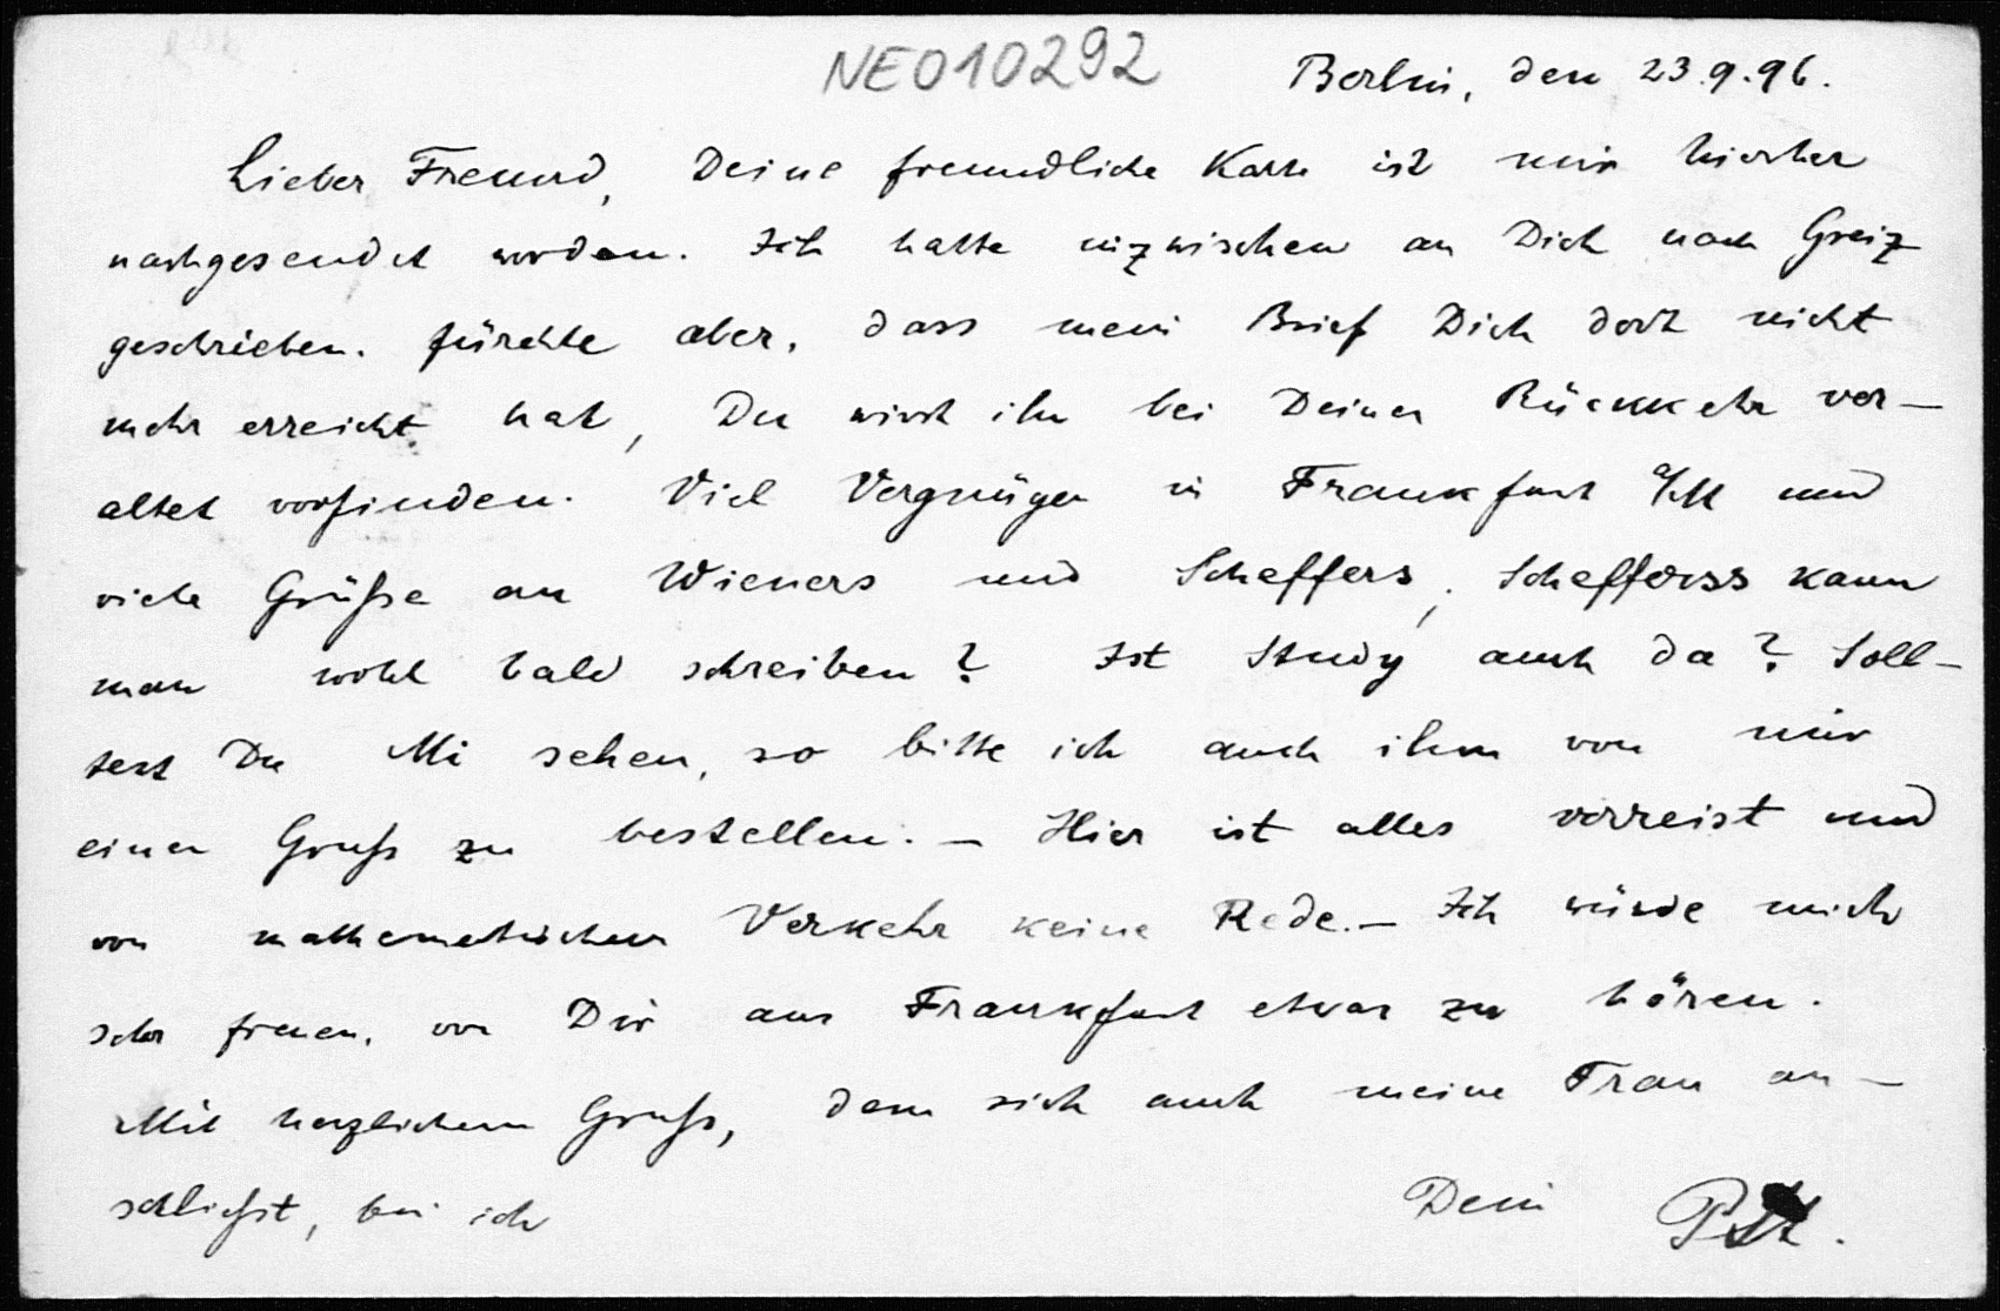 NE010292
Berlin, den 23.9.96.
Lieber Freund, Deine freundliche Karte ist mir hierher
nachgesendet worden. Ich hatte inzwischen an Dich nach Greiz
geschrieben, fürchte aber, dass mein Brief Dich dort nicht
mehr erreicht hat, Du wirst ihn bei Deiner Rückkehr ver-
altet vorfinden. Viel Vergnügen in Frankfurt a/M und
viele Grüße an Wieners und Scheffers; Scheffers kann
man wohl bald schreiben? Ist Study auch da? Soll-
test Du sehen, so bitte ich auch ihm von mir
einen Gruß zu bestellen. – Hier ist alles verreist und
von mathematischem Verkehr keine Rede. – Ich würde mich
sehr freuen, von Dir aus Frankfurt etwas zu hören.
Mit herzlichem Gruß, dem sich auch meine Frau an-
schließt, bin ich
Dein